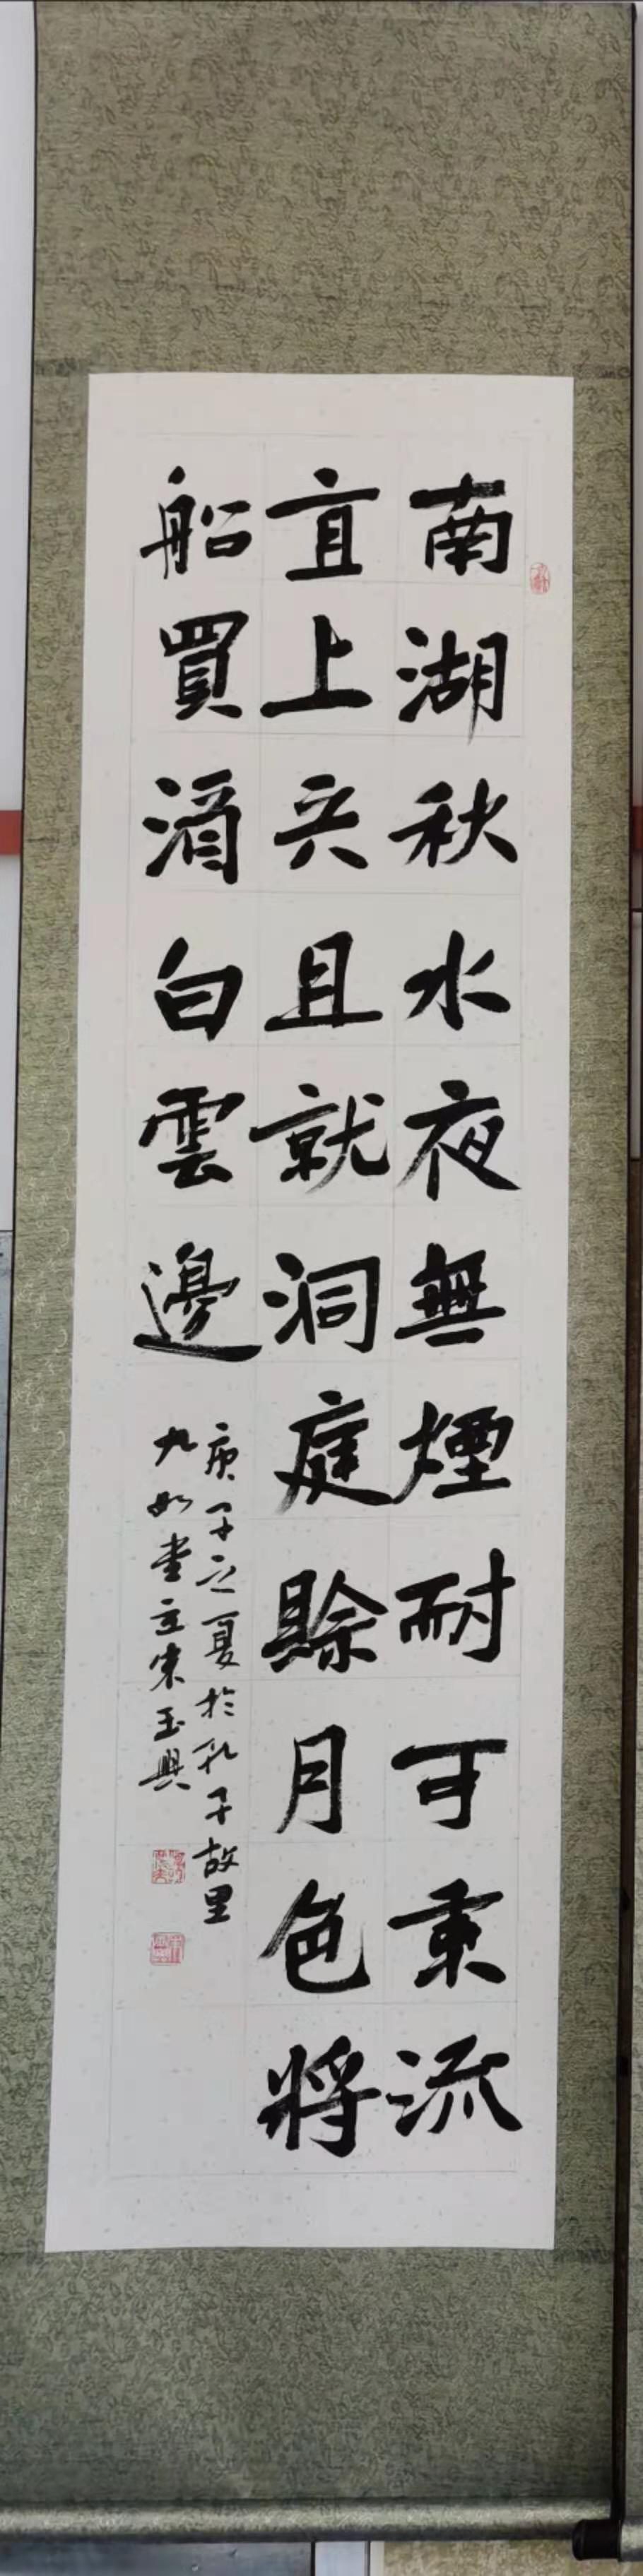 南湖秋水夜無煙耐可乘流
直上天且就洞庭賒月色將
船買酒白雲邊
庚子之夏於孔子故里
九如堂主宋玉興